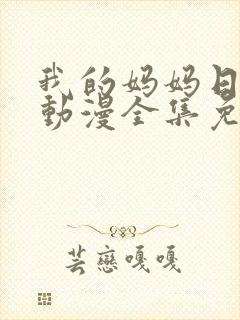 我的妈妈日
動漫全集免
芸戀嘎嘎